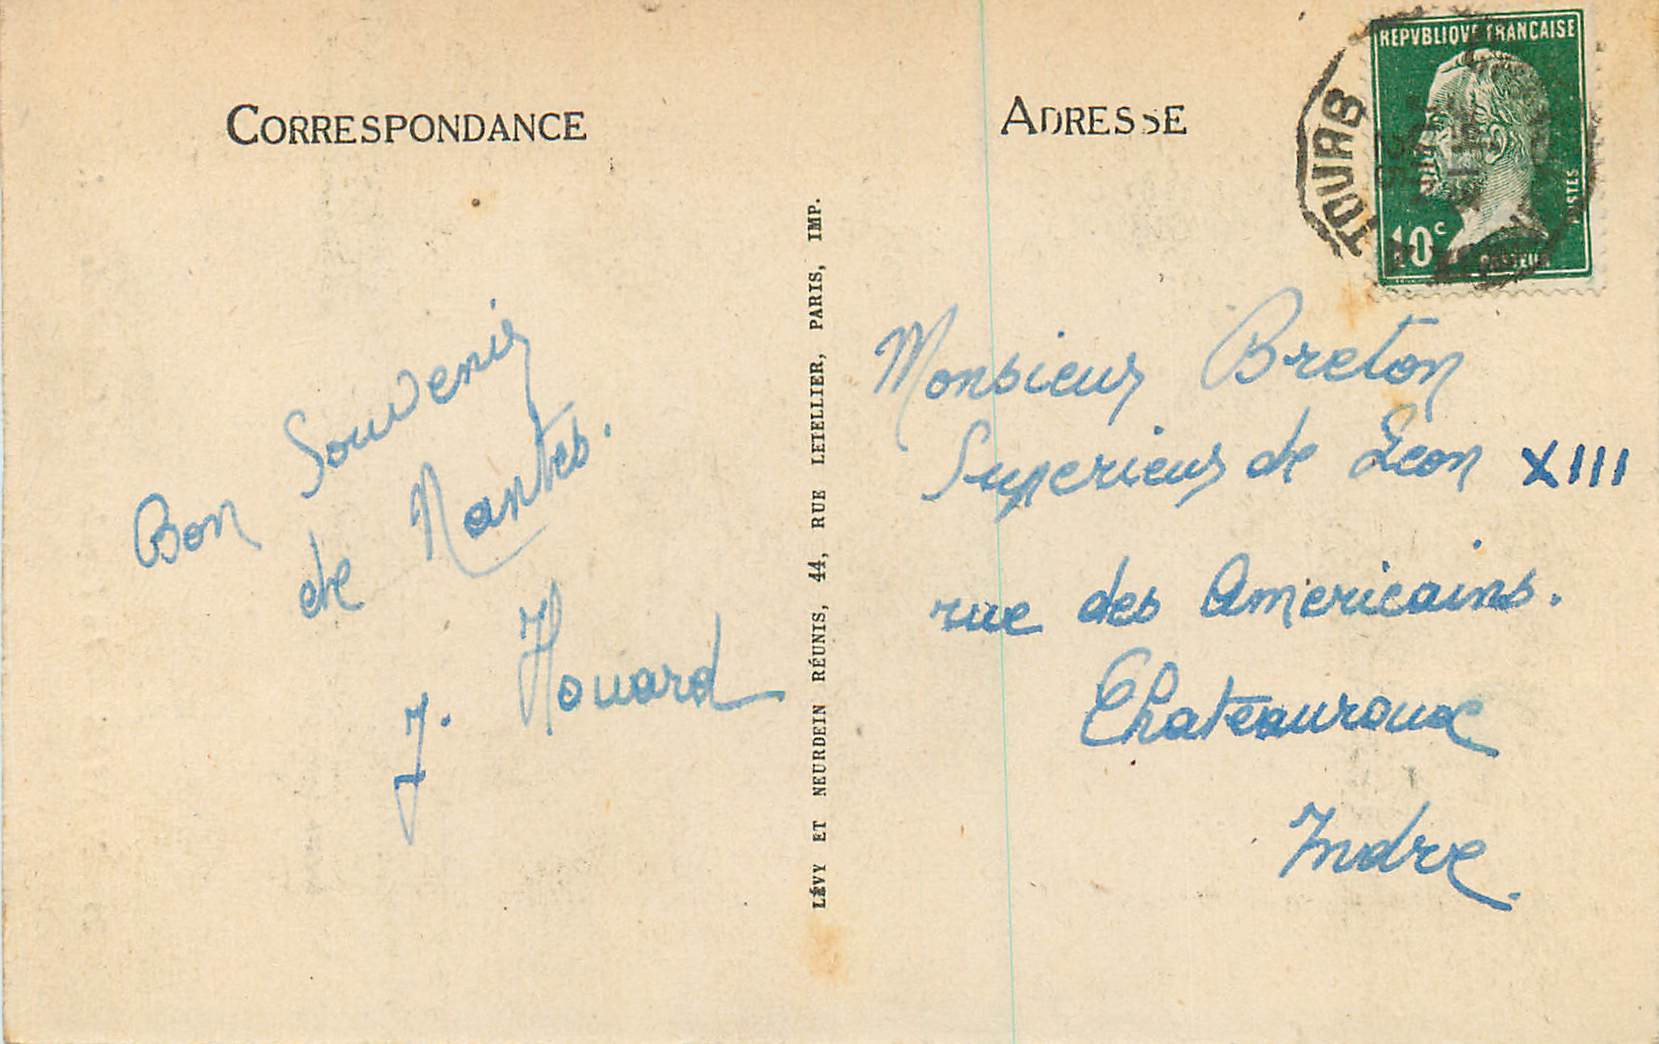 CORRESPONDANCE
Bon Souvenir
de Nantes.
J. Houard
LÉVY ET NEURDEIN RÉUNIS, 44, RUE LETELLIER, PARIS, IMP.
ADRESSE
REPVBLIQVE FRANCAISE
10c
POSTES
PASTEUR
TOURS
Monsieur Breton
Superieur de Leon XIII
rue des Americains.
Chateauroux
Indre.